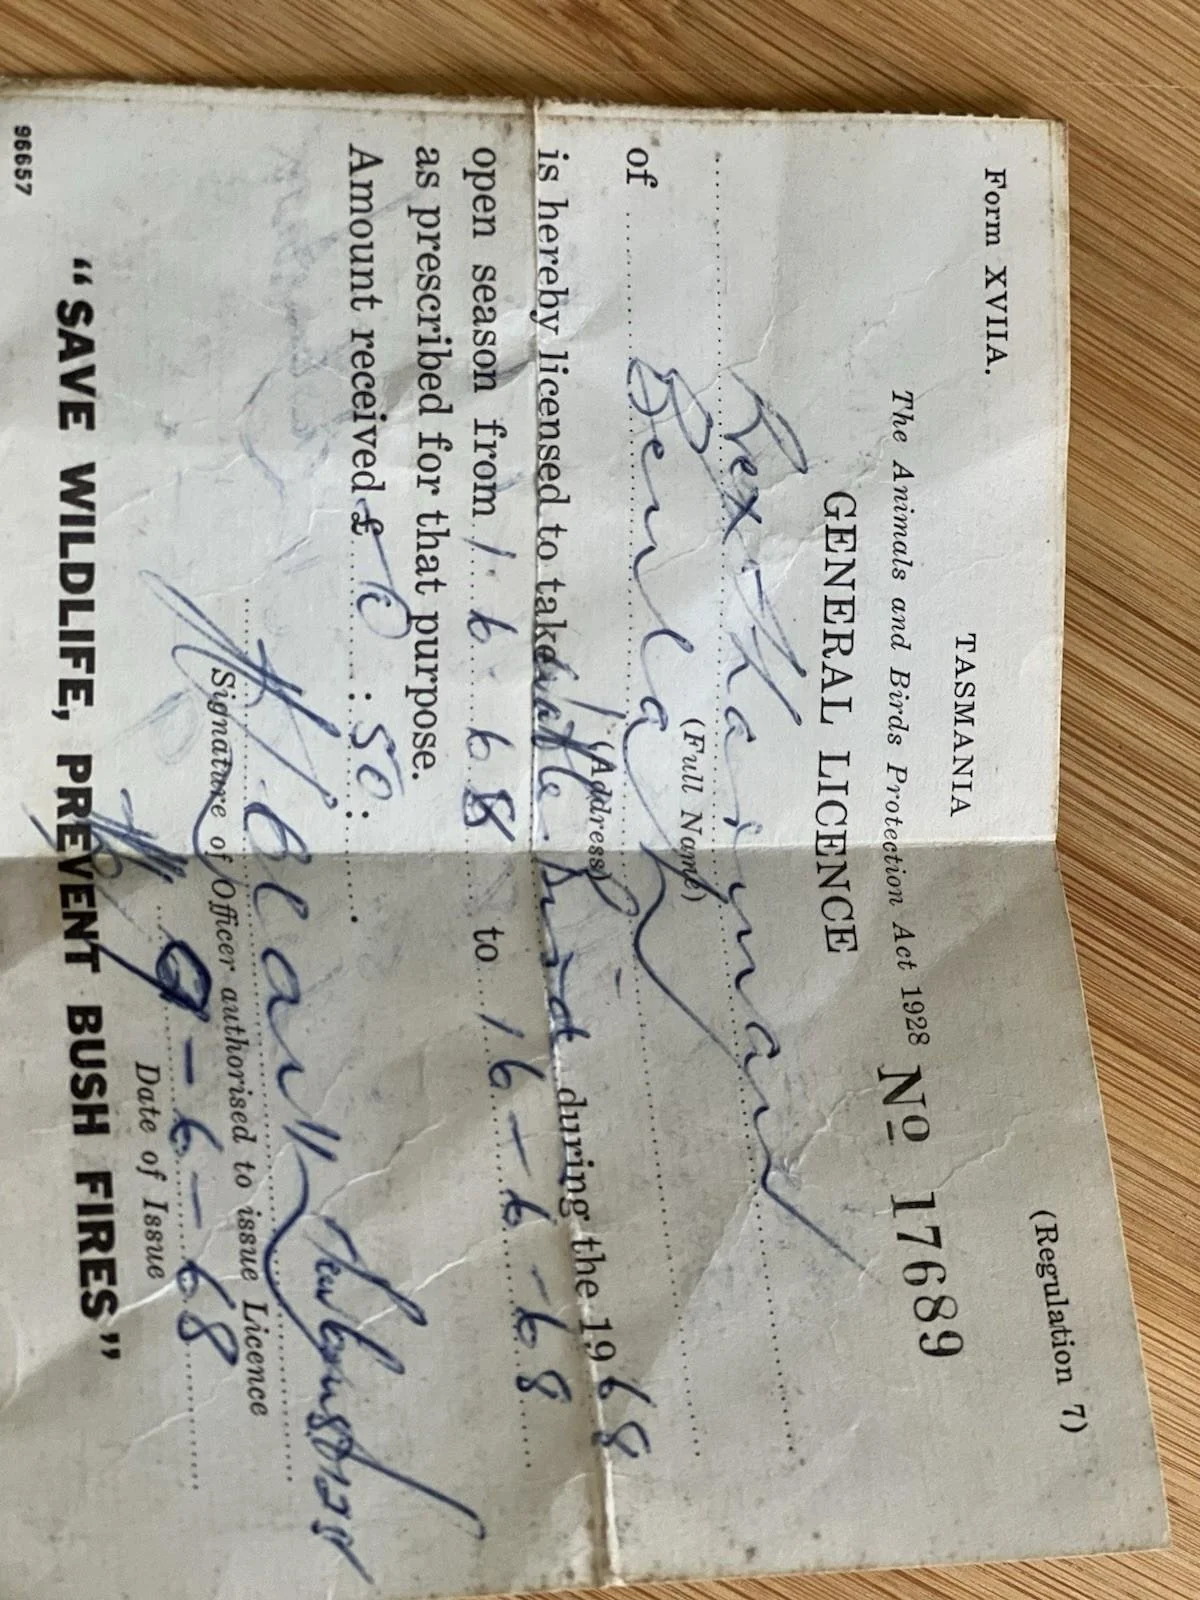 Form XVIIA. (Regulation 7)
TASMANIA
The Animals and Birds Protection Act 1928
GENERAL LICENCE Nº 17689
Rex Hainan
(Full Name)
of Beulah
(Address)
is hereby licensed to take Wattle Bird during the 1968
open season from 1 6 68 to 16-6-68
as prescribed for that purpose.
Amount received £ : 50 : .
Signature of Officer authorised to issue Licence
9-6-68
Date of Issue
"SAVE WILDLIFE, PREVENT BUSH FIRES"
96657